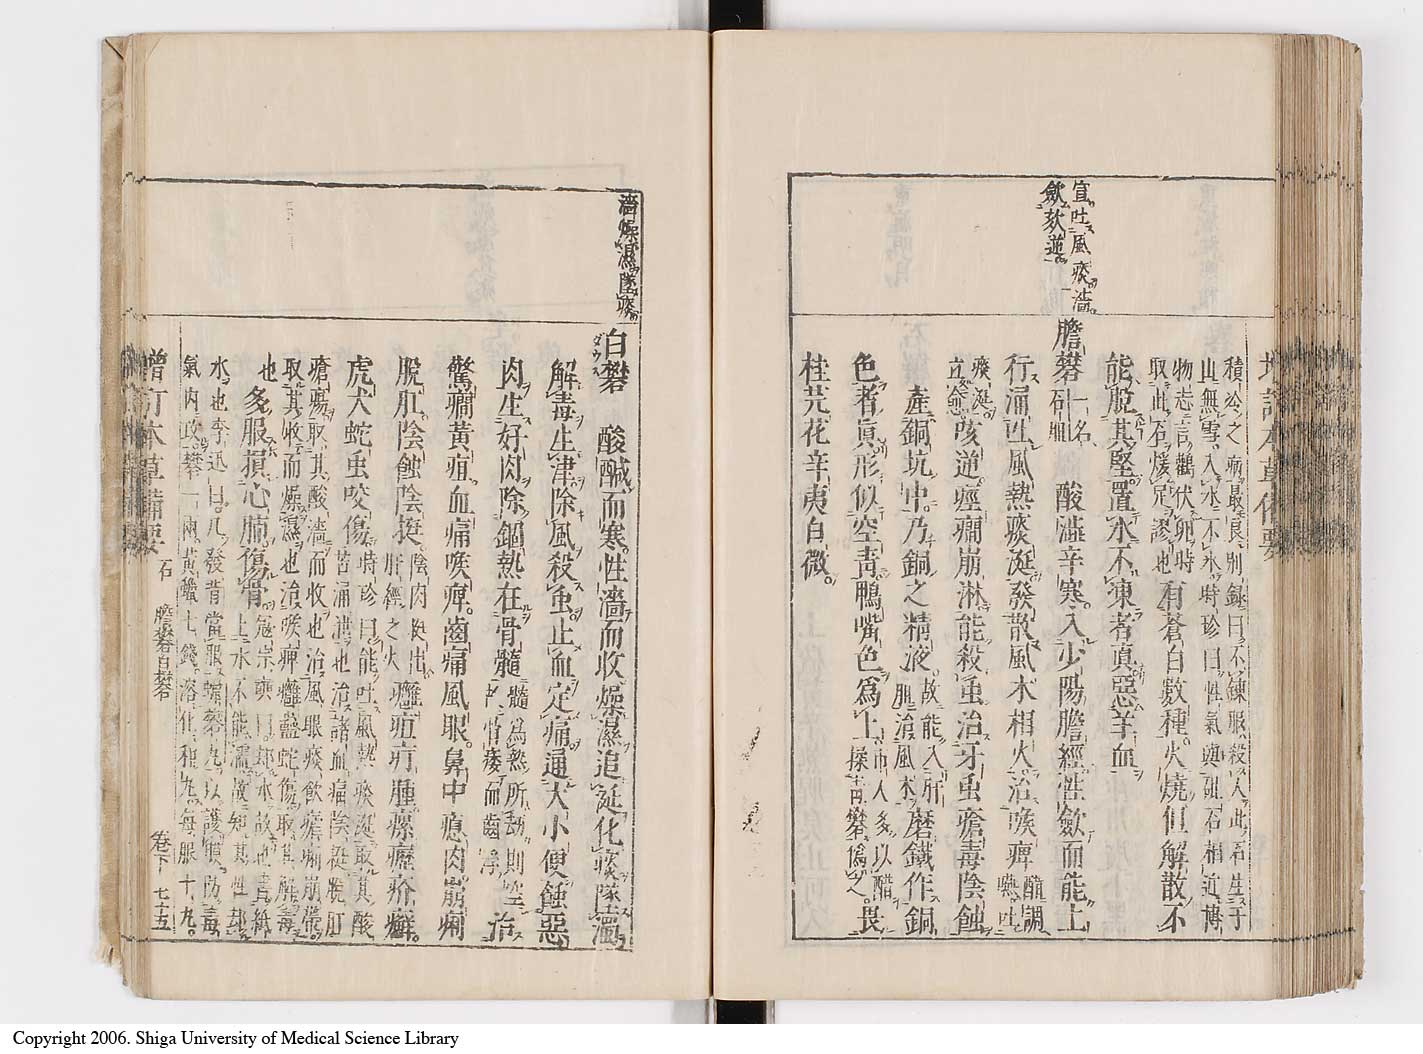 宣吐風痰濇
斂欬逆
積冷之病最良別録曰不錬服殺人此石生于
山無雪入水不氷時珍曰性氣與砒石相近博
物志言鸛伏卵時
取此石煖足謬也
有蒼白數種火燒但解散不
能脱其堅置水不凍者真惡羊血
膽礬 一名石膽 酸澁辛寒入少陽膽經性斂而能上
行涌吐風熱痰涎發散風木相火治喉痺 醋調嚥吐
痰涎立愈 欬逆痙癇崩淋能殺虫治牙虫瘡毒陰蝕
産銅坑中乃銅之精液 故能入肝膽治風木 磨鐵作銅
色者真形似空青鴨嘴色爲上 市人多以醋揉青礬僞之 畏
桂芫花辛夷白薇
濇燥濕墜痰
白礬 酸鹹而寒性濇而收燥濕追涎化痰墜濁
ダウス
解毒生津除風殺虫止血定痛通大小便蝕惡
肉生好肉除錮熱在骨髓 髓爲熱所劫則空故骨痿而齒浮 治
驚癇黄疸血痛喉痺齒痛風眼鼻中瘜肉崩痢
脱肛陰蝕陰挺 陰肉挺出肝經之火 癰疽疔腫瘰癧疥癬
虎犬蛇虫咬傷 時珍曰能吐風熱痰涎取其酸
苦涌泄也治諸血痛陰挺脱肛
瘡瘍取其酸濇而收也治風眼痰飲瘧痢崩帶
取其收而燥濕也治喉痺癰蠱蛇傷取其解毒
也 多服損心肺傷骨 寇宗奭曰却水故也書紙
上水不能濡故知其性却
水也李迅曰凡發背當服蠟礬丸以護膜防毒
氣内攻礬一兩黄蠟七錢溶化和丸毎服十丸
増訂本草備要 石 膽礬白礬 卷下 七十五
Copyright 2006. Shiga University of Medical Science Library